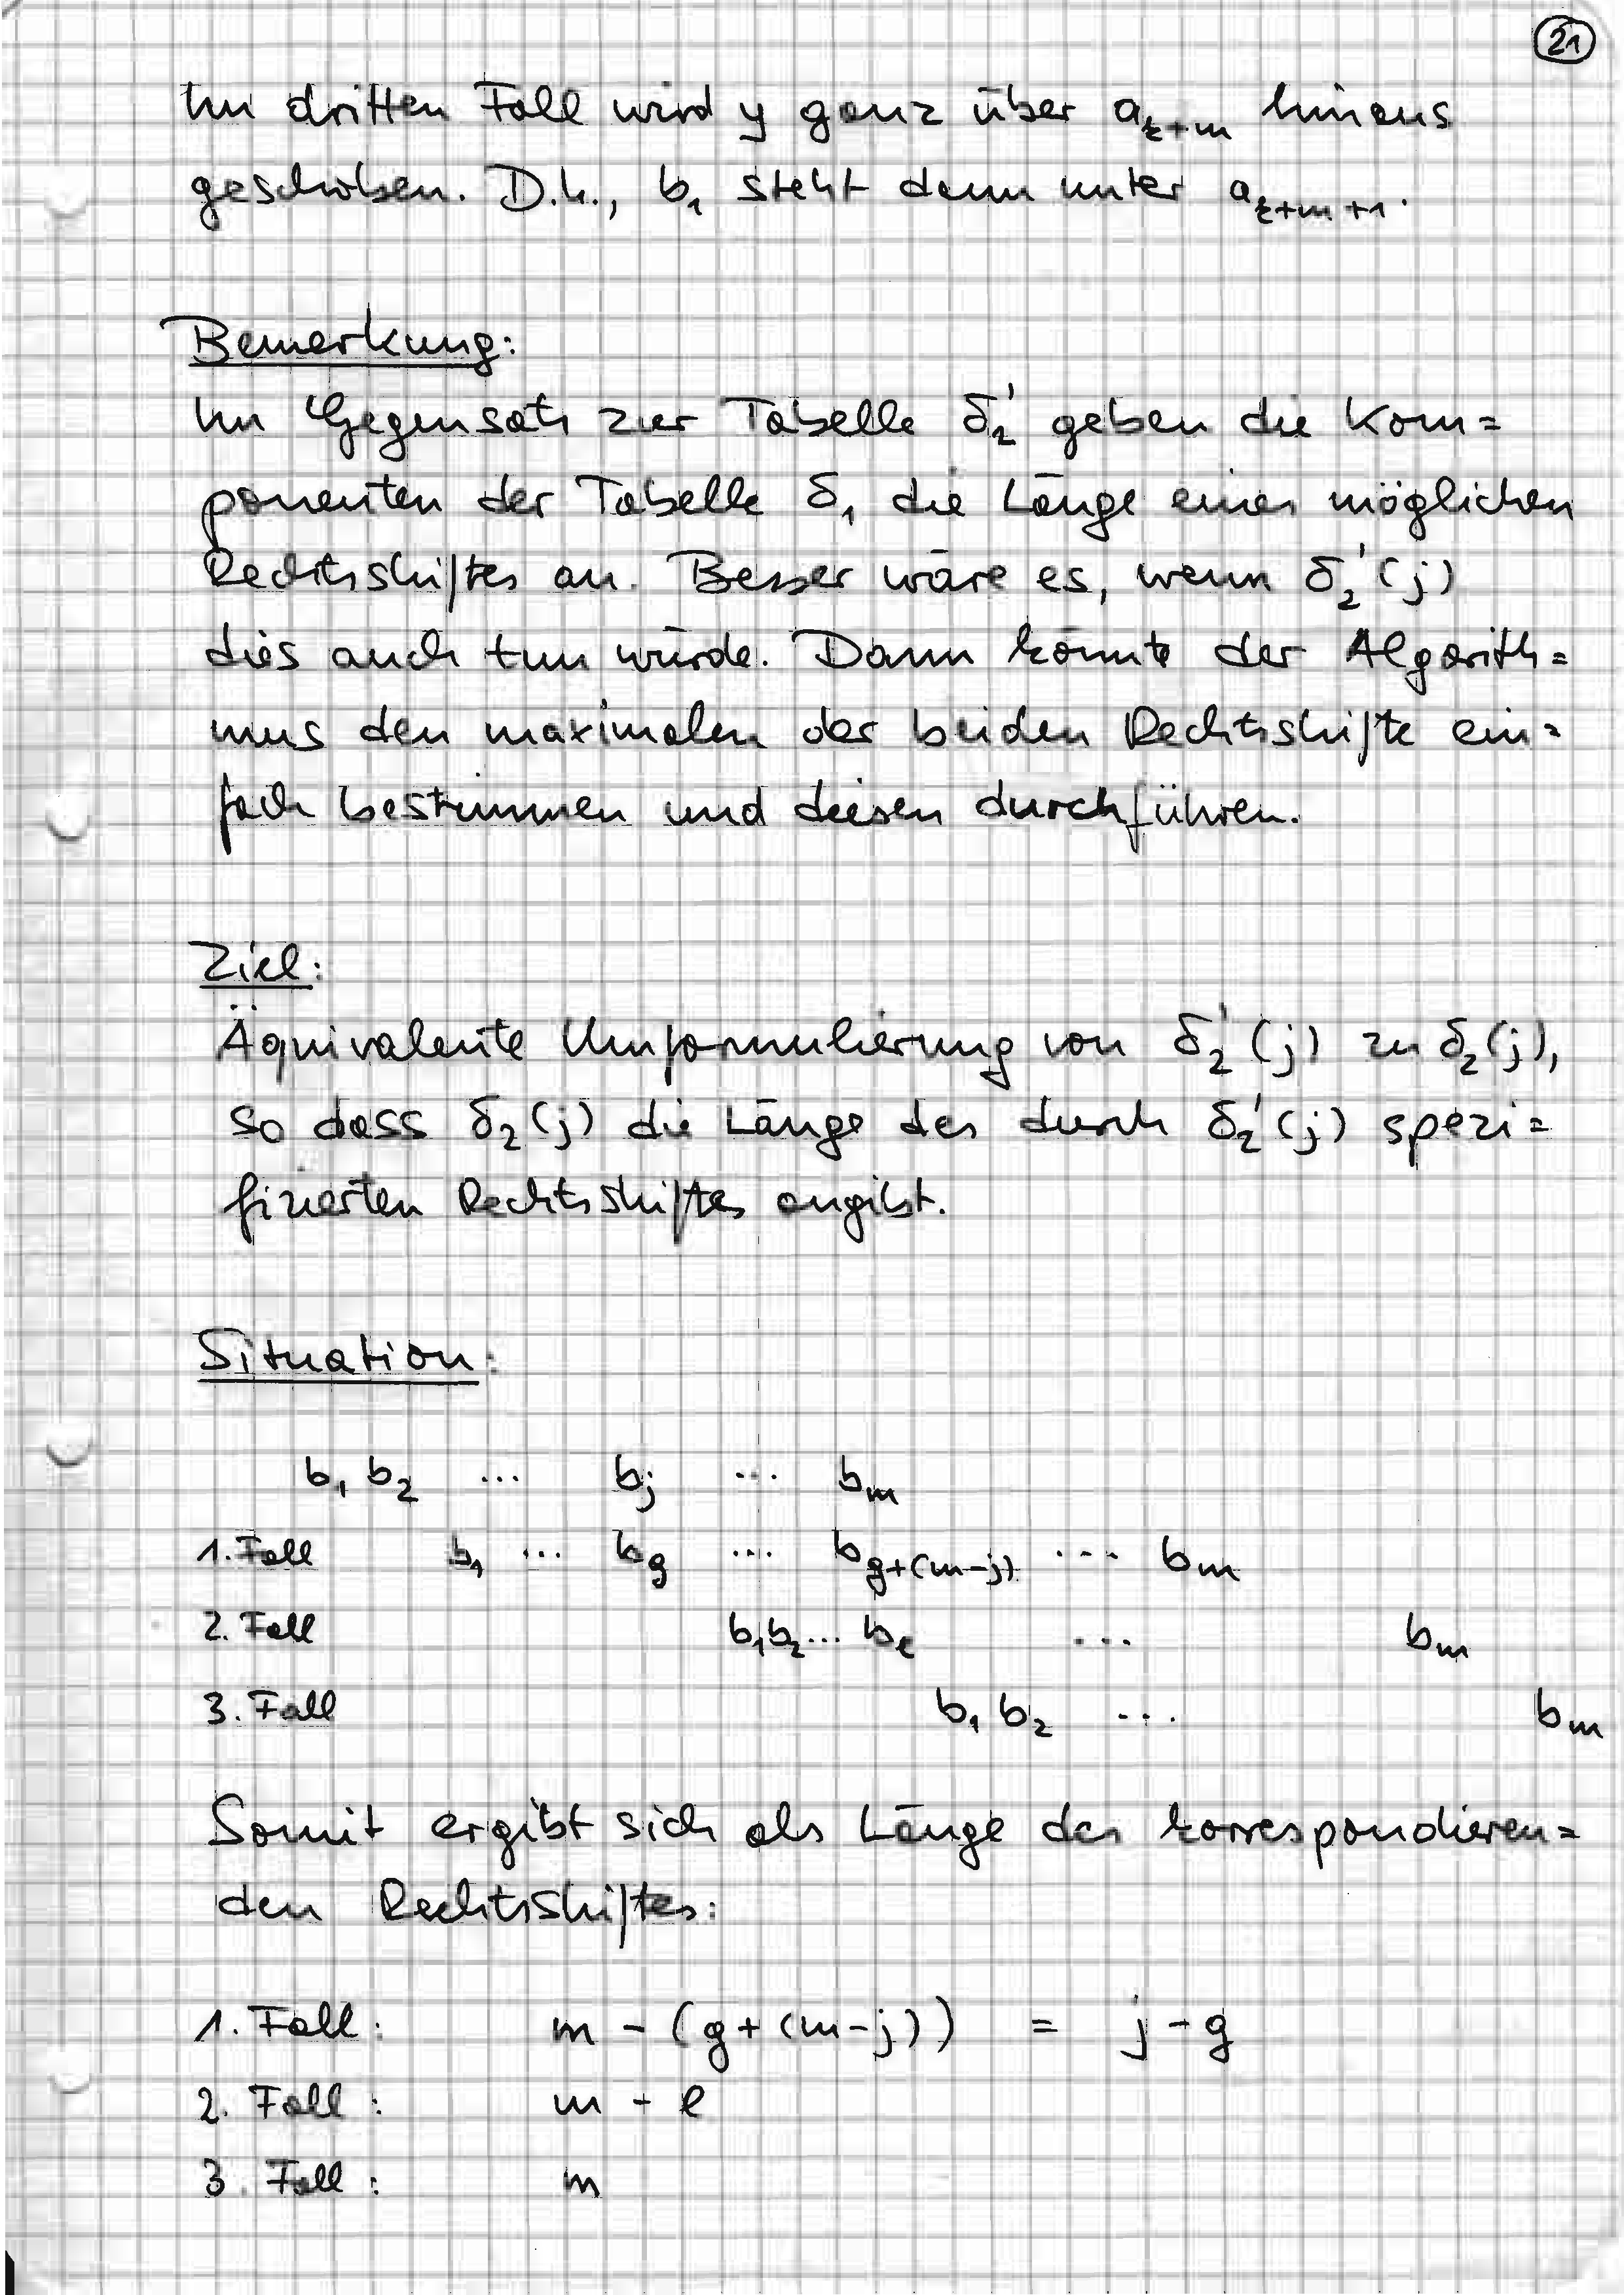 21
Im dritten Fall wird y ganz über a_{k+m} hinaus
geschoben. D.h., b₁ steht dann unter a_{k+m+1}.
Bemerkung:
Im Gegensatz zur Tabelle δ₂' geben die Kom=
ponenten der Tabelle δ₁ die Länge eines möglichen
Rechtsshiftes an. Besser wäre es, wenn δ₂'(j)
dies auch tun würde. Dann könnte der Algorith=
mus den maximalen der beiden Rechtsshifte ein=
fach bestimmen und diesen durchführen.
Ziel:
Äquivalente Umformulierung von δ₂'(j) zu δ₂(j),
so dass δ₂(j) die Länge des durch δ₂'(j) spezi=
fizierten Rechtsshiftes angibt.
Situation:
b₁ b₂ ... b_j ... b_m
1. Fall b₁ ... b_g ... b_{g+(m-j)} ... b_m
2. Fall b₁b₂... b_ℓ ... b_m
3. Fall b₁ b₂ ... b_m
Somit ergibt sich als Länge des korrespondieren=
den Rechtsshiftes:
1. Fall: m - (g+(m-j)) = j-g
2. Fall: m - ℓ
3. Fall: m